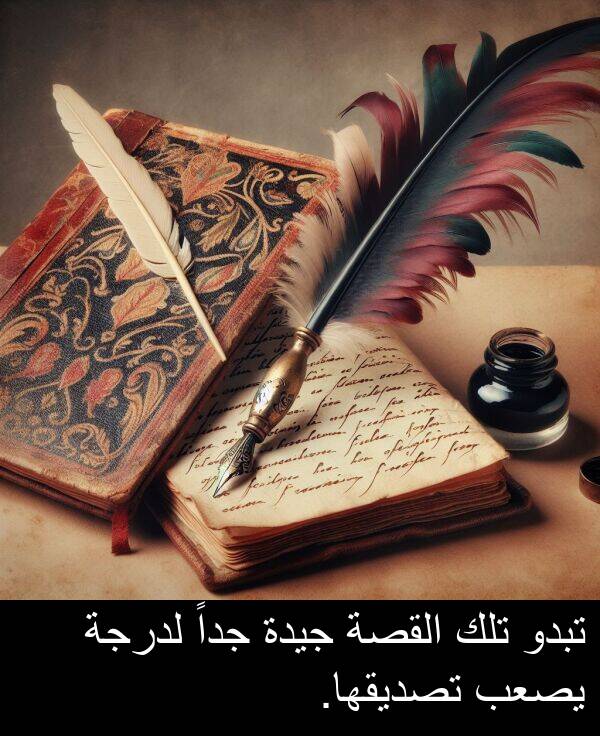 تبدو تلك القصة جيدة جداً لدرجة
يصعب تصديقها.